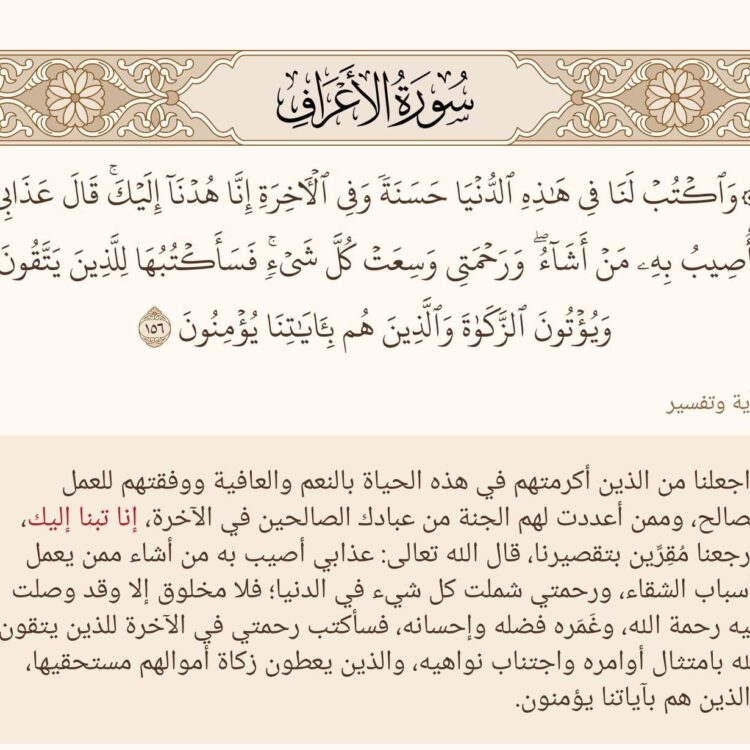 سُورَةُ الأَعۡرَافِ
وَٱكۡتُبۡ لَنَا فِي هَٰذِهِ ٱلدُّنۡيَا حَسَنَةٗ وَفِي ٱلۡأٓخِرَةِ إِنَّا هُدۡنَآ إِلَيۡكَۚ قَالَ عَذَابِي
أُصِيبُ بِهِۦ مَنۡ أَشَآءُۖ وَرَحۡمَتِي وَسِعَتۡ كُلَّ شَيۡءٖۚ فَسَأَكۡتُبُهَا لِلَّذِينَ يَتَّقُونَ
وَيُؤۡتُونَ ٱلزَّكَوٰةَ وَٱلَّذِينَ هُم بِـَٔايَٰتِنَا يُؤۡمِنُونَ ١٥٦
ية وتفسير
اجعلنا من الذين أكرمتهم في هذه الحياة بالنعم والعافية ووفقتهم للعمل
صالح، وممن أعددت لهم الجنة من عبادك الصالحين في الآخرة، إنا تبنا إليك،
رجعنا مُقِرِّين بتقصيرنا، قال الله تعالى: عذابي أصيب به من أشاء ممن يعمل
سباب الشقاء، ورحمتي شملت كل شيء في الدنيا؛ فلا مخلوق إلا وقد وصلت
يه رحمة الله، وغَمَره فضله وإحسانه، فسأكتب رحمتي في الآخرة للذين يتقون
له بامتثال أوامره واجتناب نواهيه، والذين يعطون زكاة أموالهم مستحقيها،
الذين هم بآياتنا يؤمنون.